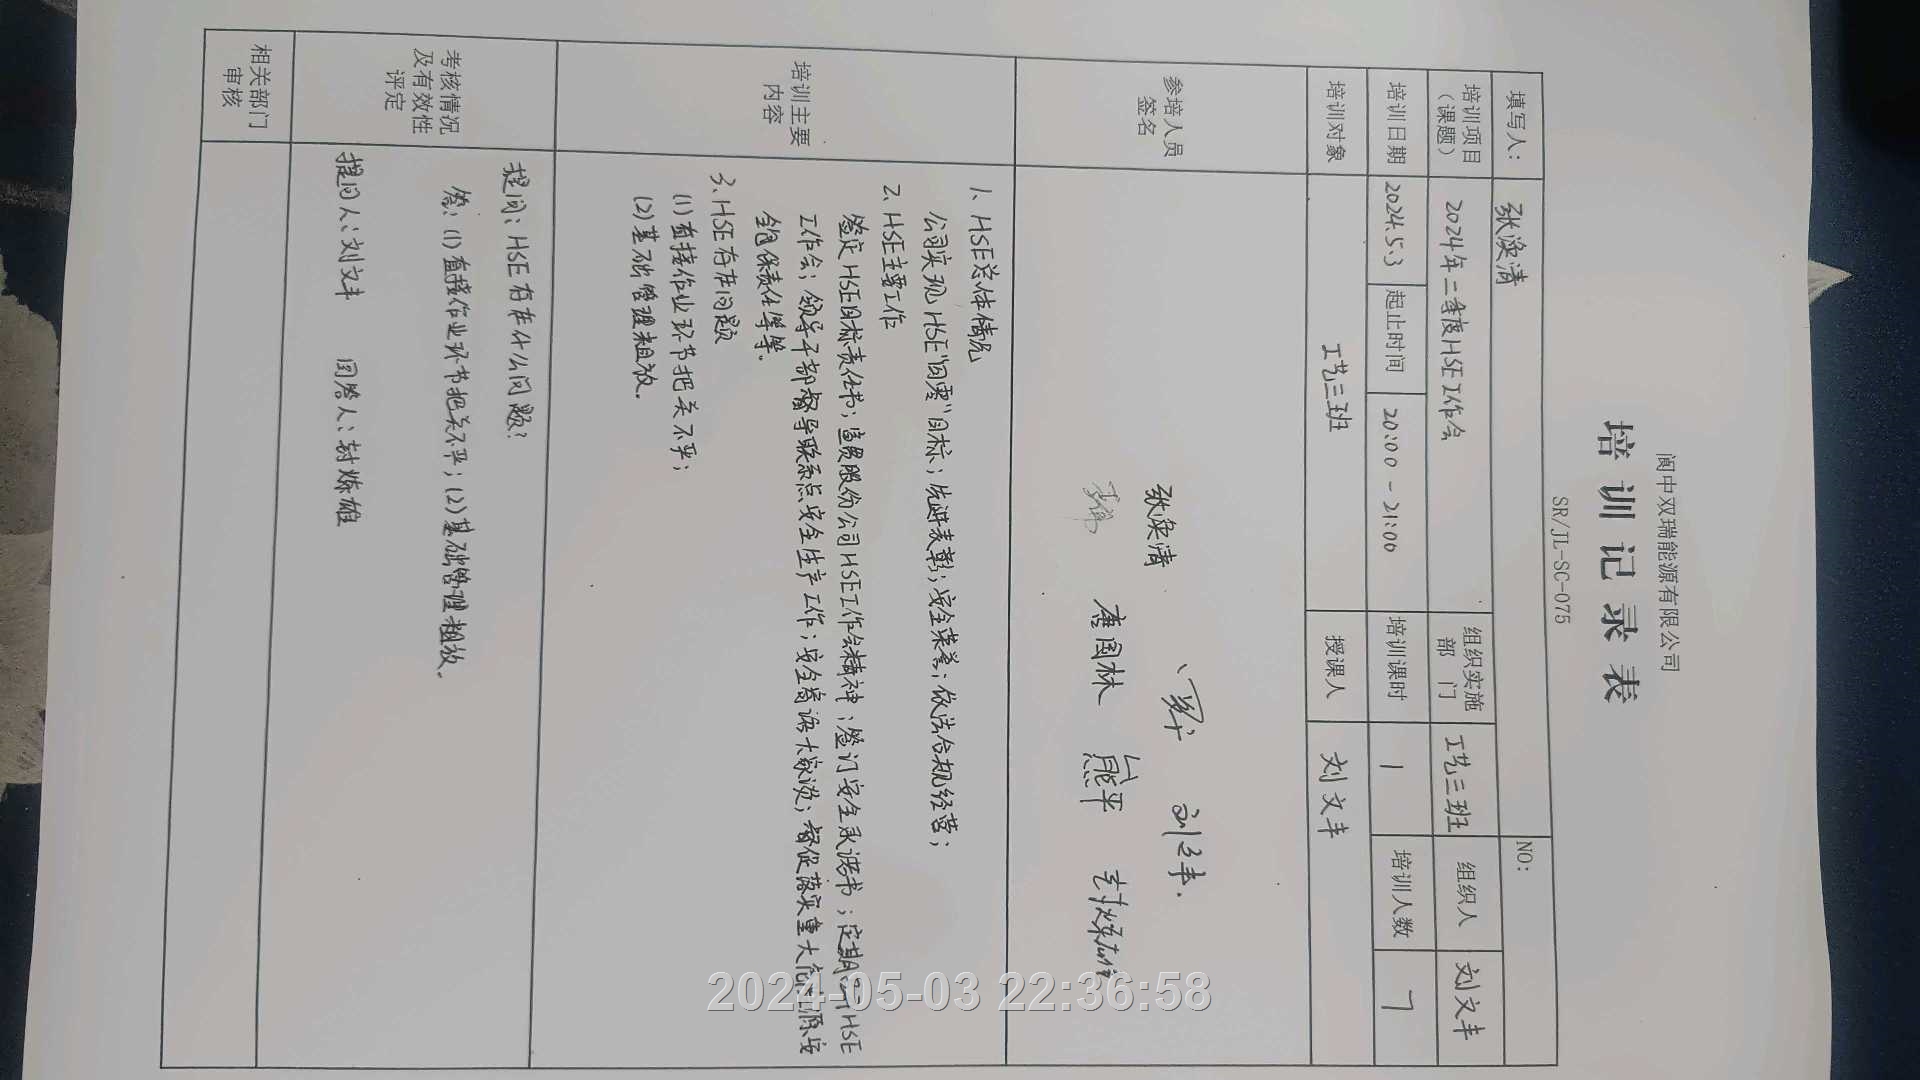 阆中双瑞能源有限公司
培训记录表
SR/JL-SC-075
填写人： 张涣清 NO:
培训项目（课题） 2024年二季度HSE工作会 组织实施部门 工艺三班 组织人 刘文丰
培训日期 2024.5.3 起止时间 20:00-21:00 培训课时 1 培训人数 7
培训对象 工艺三班 授课人 刘文丰
参培人员签名
张涣清 刘文丰.
唐国林 熊平
培训主要内容
1、HSE总体情况
公司实现HSE"四零"目标；先进表彰；安全荣誉；依法合规经营；
2、HSE主要工作
签定HSE目标责任书；宣贯股份公司HSE工作会精神；签订安全承诺书；定期召开HSE
工作会；领导干部督导联系点安全生产工作；安全寄语大家谈；督促落实重大危险源安
全包保责任等等。
3、HSE存在问题
(1)直接作业环节把关不严；
(2)基础管理粗放.
考核情况及有效性评定
提问：HSE存在什么问题？
答：(1)直接作业环节把关不严；(2)基础管理粗放.
提问人：刘文丰 回答人：封炼雄
相关部门审核
2024-05-03 22:36:58